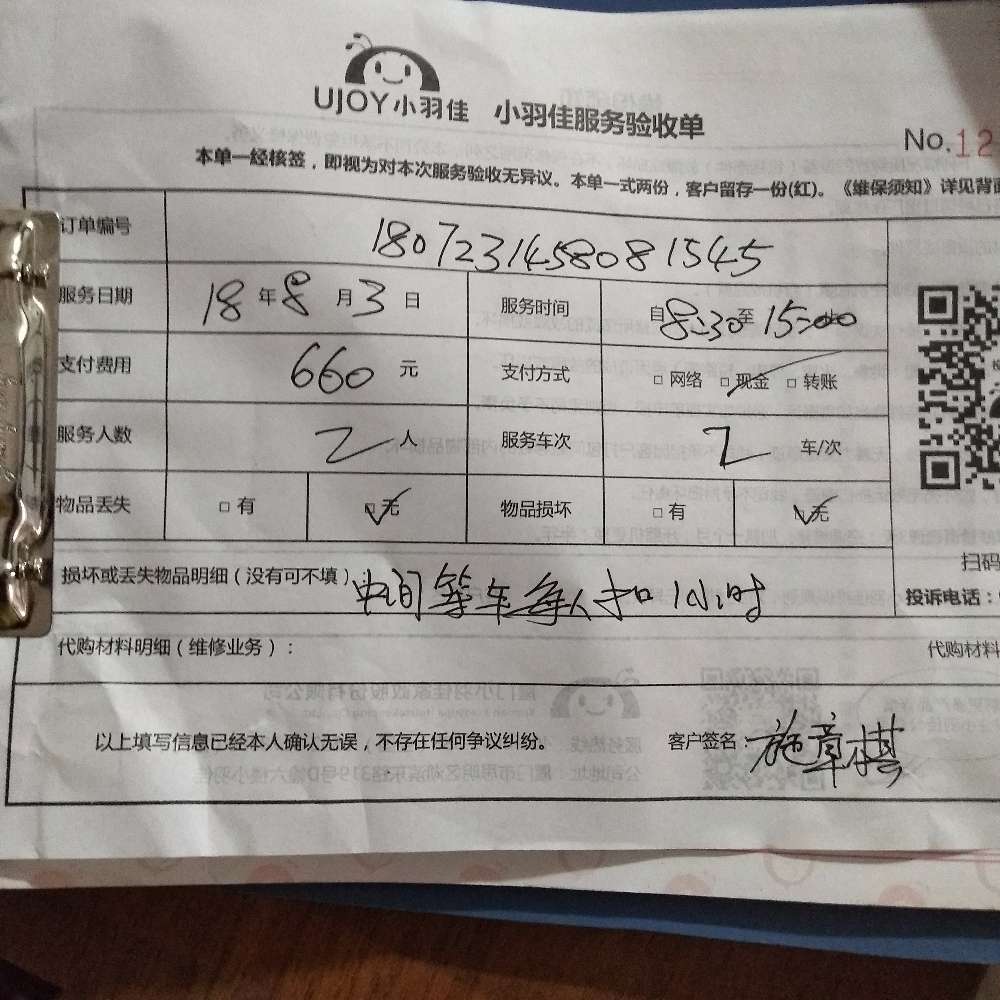 UJOY小羽佳 小羽佳服务验收单
No.12
本单一经核签，即视为对本次服务验收无异议。本单一式两份，客户留存一份(红)。《维保须知》详见背面
订单编号 180723145808 1545
服务日期 18年8月3日 服务时间 自8:30至15:00
支付费用 660元 支付方式 □网络 □现金 □转账
服务人数 2人 服务车次 2车/次
物品丢失 □有 □无 物品损坏 □有 □无
扫码
损坏或丢失物品明细（没有可不填） 中间等车每人扣1小时 投诉电话：
代购材料明细（维修业务）： 代购材料
以上填写信息已经本人确认无误，不存在任何争议纠纷。 客户签名：施章棋